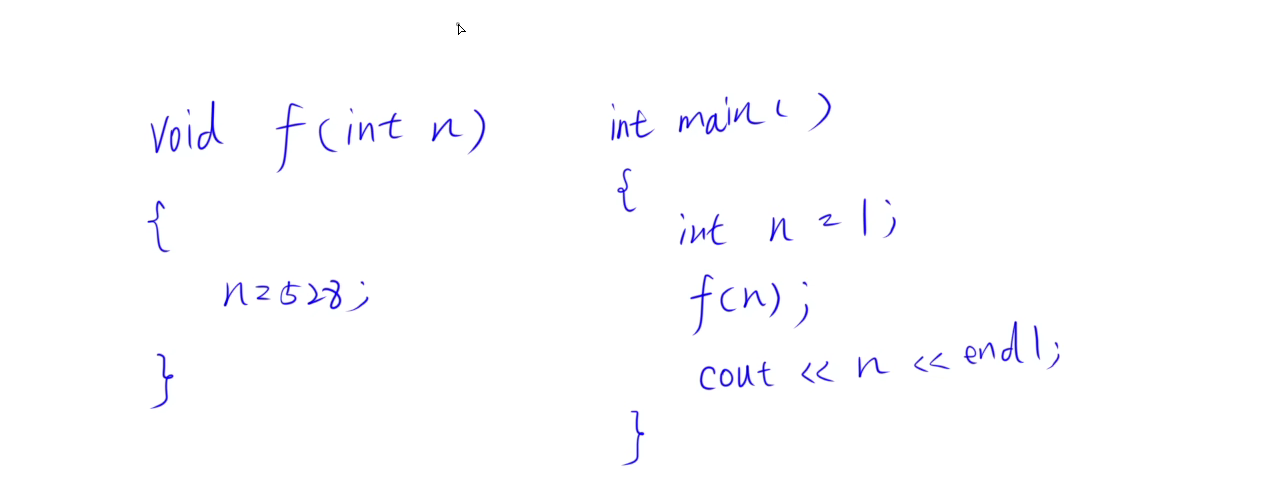 void f(int n)
{
n=528;
}
int main()
{
int n=1;
f(n);
cout << n << endl;
}